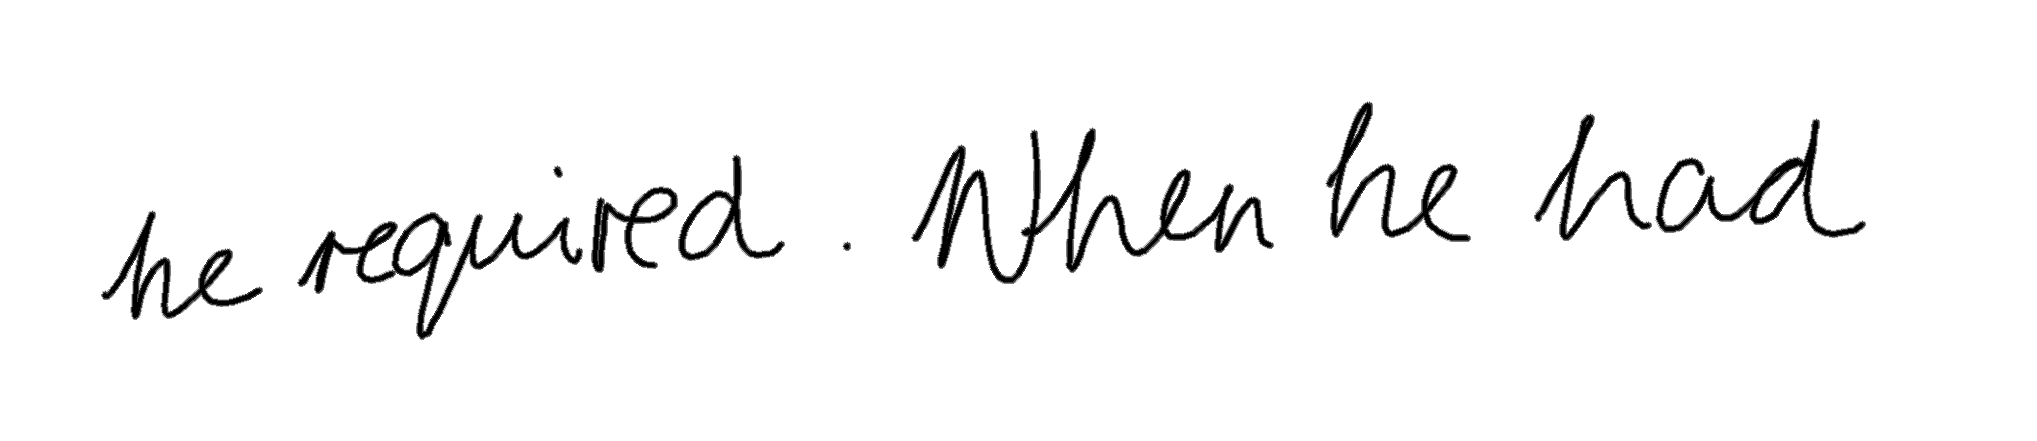 he required. When he had